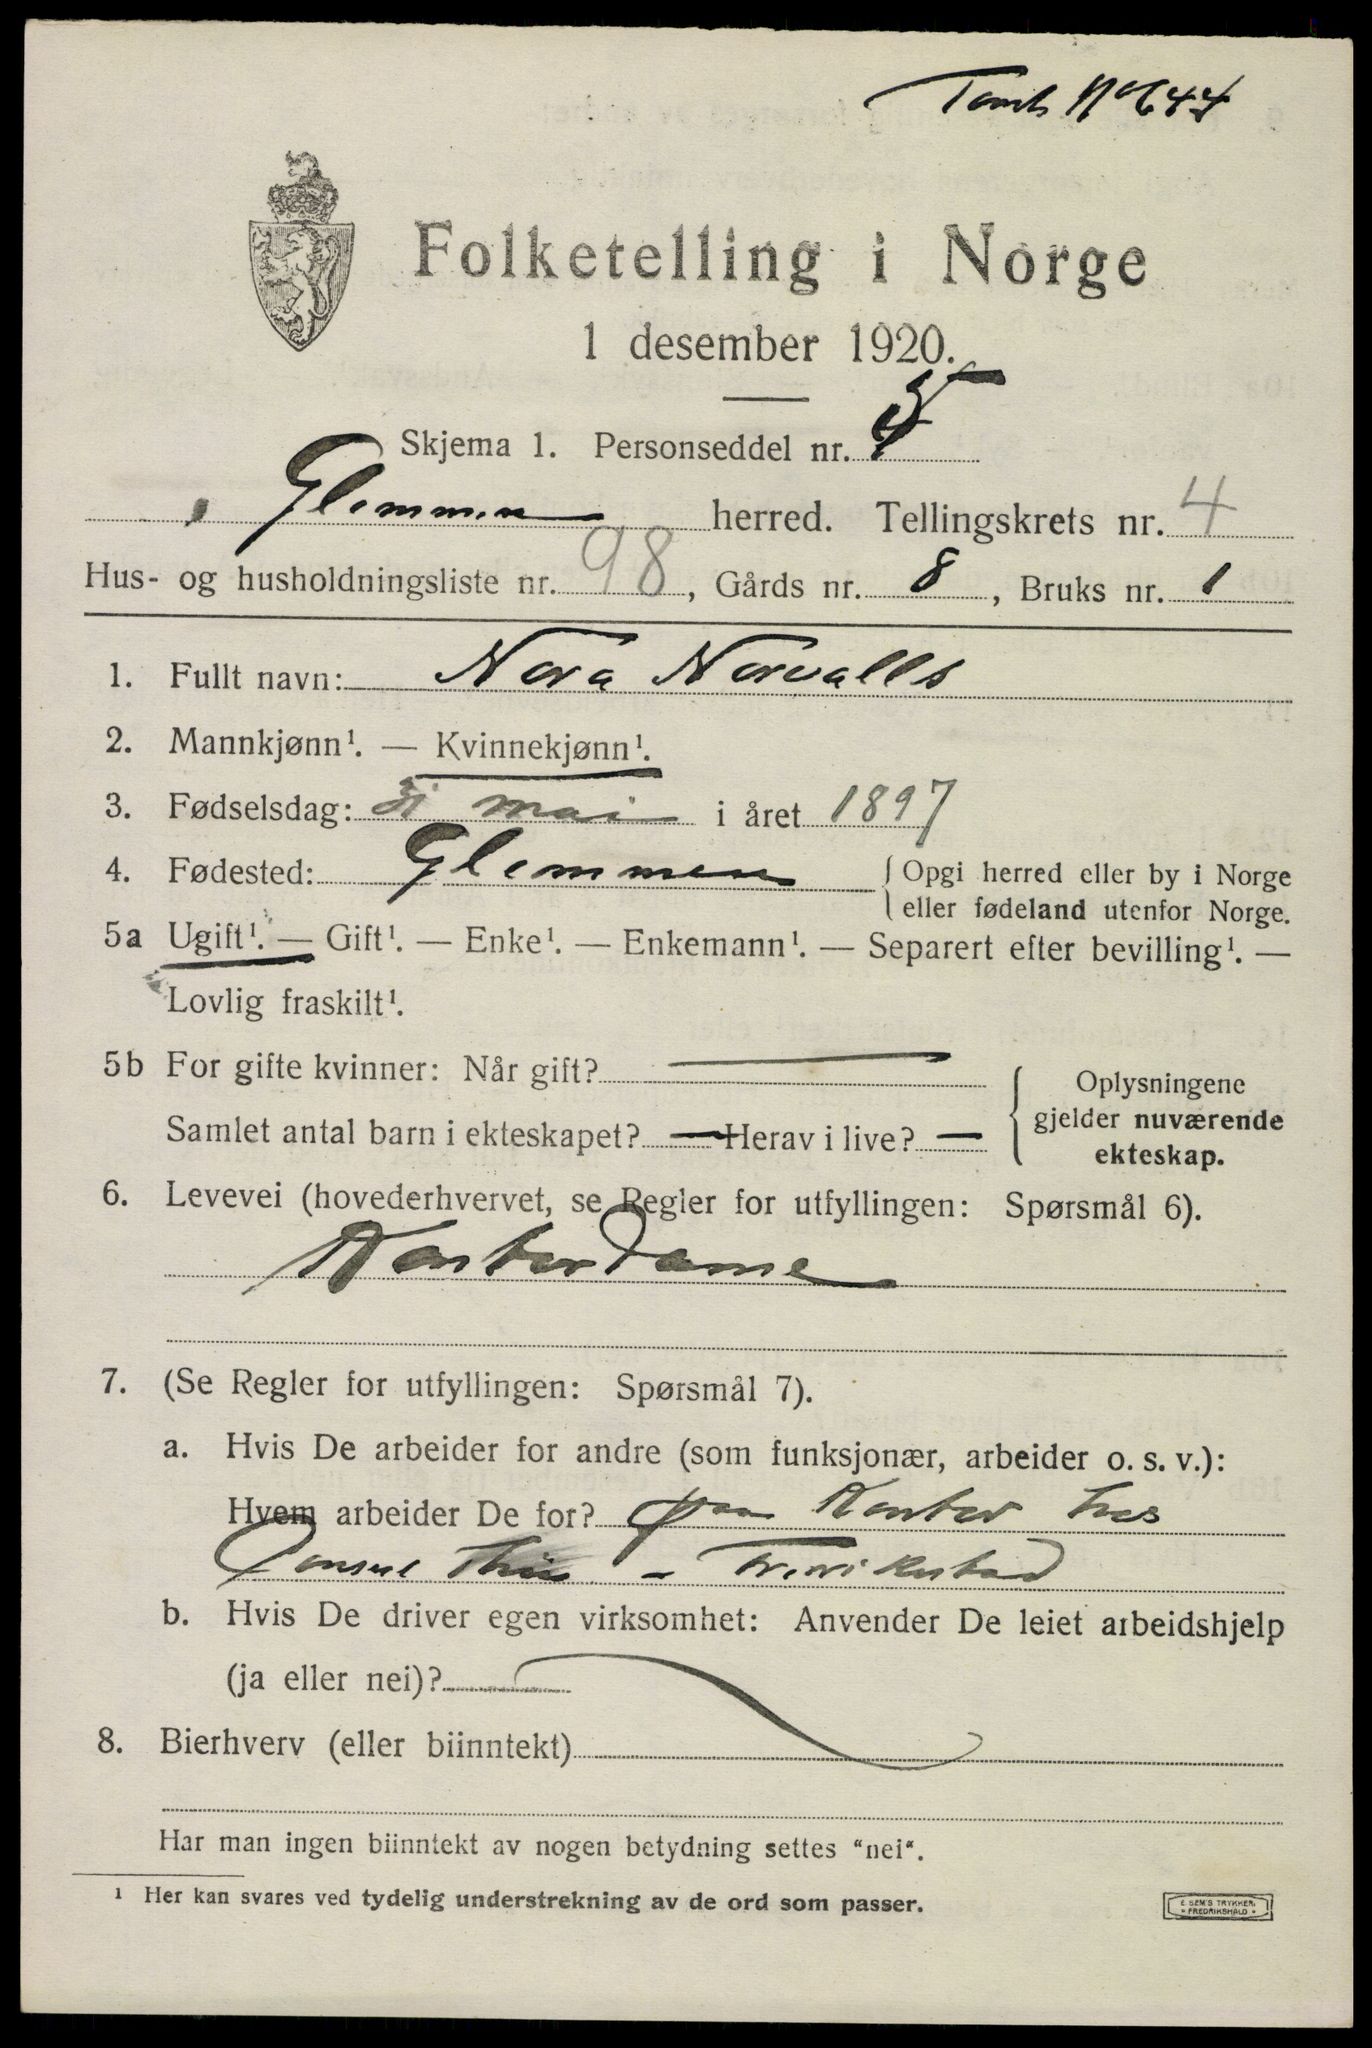 Tomt No 644
Folketelling i Norge
1 desember 1920.
Skjema 1. Personseddel nr. 5
Glemmen herred. Tellingskrets nr. 4
Hus- og husholdningsliste nr. 98, Gårds nr. 8, Bruks nr. 1
1. Fullt navn: Nora Norvalls
2. Mannkjønn¹. — Kvinnekjønn¹.
3. Fødselsdag: 31 mai i året 1897
4. Fødested: Glemmen { Opgi herred eller by i Norge
eller fødeland utenfor Norge.
5a Ugift¹. — Gift¹. — Enke¹. — Enkemann¹. — Separert efter bevilling¹. —
Lovlig fraskilt¹.
5b For gifte kvinner: Når gift? —
Samlet antal barn i ekteskapet? — Herav i live? —
{ Oplysningene
gjelder nuværende
ekteskap.
6. Levevei (hovederhvervet, se Regler for utfyllingen: Spørsmål 6).
Kontordame
7. (Se Regler for utfyllingen: Spørsmål 7).
a. Hvis De arbeider for andre (som funksjonær, arbeider o. s. v.):
Hvem arbeider De for? paa Kontor hos
Consul Thiis – Fredrikstad
b. Hvis De driver egen virksomhet: Anvender De leiet arbeidshjelp
(ja eller nei)?
8. Bierhverv (eller biinntekt)
Har man ingen biinntekt av nogen betydning settes "nei".
¹ Her kan svares ved tydelig understrekning av de ord som passer.
E. SEM'S TRYKKERI
FREDRIKSHALD